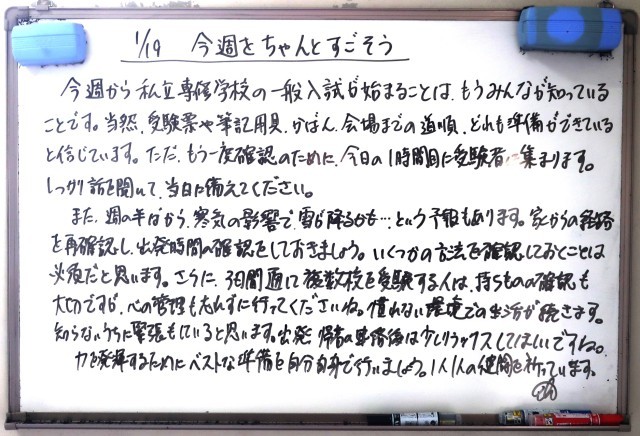 1/19 今週をちゃんとすごそう
今週から私立専修学校の一般入試が始まることは、もうみんなが知っている
ことです。当然、受験票や筆記用具、かばん、会場までの道順、どれも準備ができている
と信じています。ただ、もう一度確認のために、今日の1時間目に受験者に集まります。
しっかり話を聞いて、当日に備えてください。
また、週の半ばから、寒気の影響で雪が降るかも…という予報もあります。家からの経路
を再確認し、出発時間の確認をしておきましょう。いくつかの方法を確認しておくことは
必須だと思います。さらに、3日間通して複数校を受験する人は、持ちものの確認も
大切ですが、心の管理も忘れずに行ってくださいね。慣れない環境での生活が続きます。
知らないうちに緊張もしていると思います。出発、帰着の準備後は少しリラックスしてほしいですね。
力を発揮するためにベストな準備を自分自身で行いましょう。1人1人の健闘を祈っています。